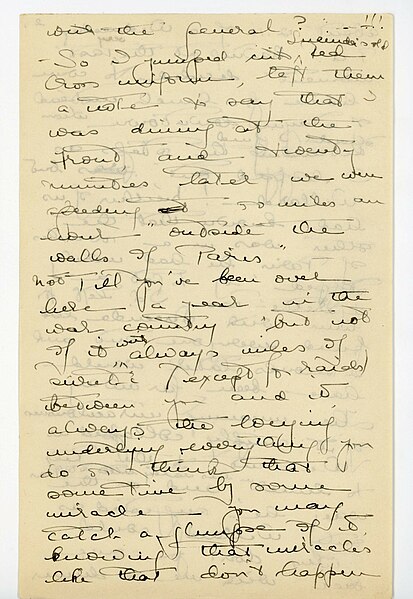 with the General ? !!!
So I jumped into Lucinda's old red
Cross uniform, left them
a note to say that I
was dining at the
front and twenty
minutes later we were
speeding at 50 miles an
hour "outside the
walls of Paris"
not till you've been over
here a year in the
war country but not
of it with always miles of
(except for raids)
between you and it
always the longing
underlying everything you
do or think that
some time by some
miracle – you may
catch a glimpse of it,
knowing that miracles
like that don't happen